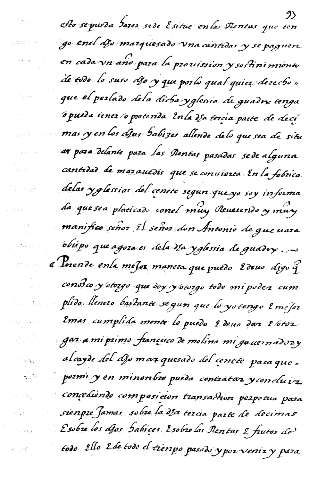 97
esto se pueda hazer se de situe en las Rentas que ten
go en el dho marquesado una cantidad y se paguen
en cada un año para la provission y sostinimiento
de todo lo suso dho y que por lo qual quier derecho
que el perlado de la dicha yglesia de guadix tenga
o pueda tener o pretenda En la dha tercia parte de deci
mas y en los dhos habizes allende de lo que sea de situ
ar para delante para las Rentas pasadas se de alguna
cantidad de maravedis que se convierta En la fabrica
de las yglessias del cenete segun que yo soy informa
da que sea platicado con el muy Reverendo y muy
manifico señor El señor don Antonio de guevara
obispo que agora es de la dha yglesia de guadix
Porende en la mejor manera que puedo E devo digo q
conozco y otorgo que doy y otorgo todo mi poder cum
plido llenero bastante segun que lo yo tengo E mejor
E mas cumplida mente lo puedo E devo dar E otor
gar a mi primo françisco de molina mi governador y
alcayde del dho marquesado del cenete para que
por mi y en mi nombre pueda contratar y concluir
conçediendo composicion transaction perpetua para
sienpre Jamas sobre la dha tercia parte de decimas
E sobre los dhos habices E sobre las Rentas E frutos de
todo Ello E de todo el tienpo pasado y por venir y para